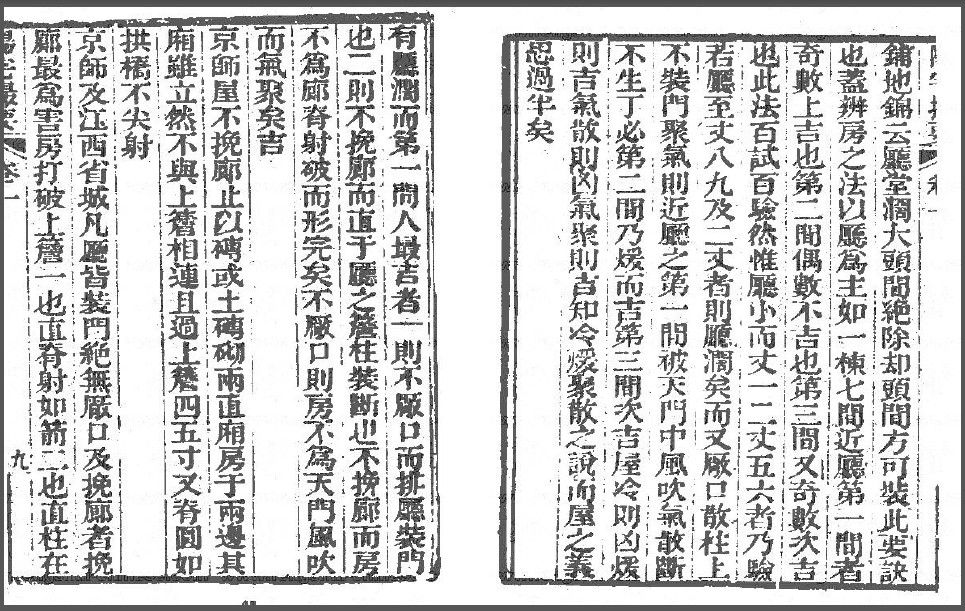 鋪地錦云廳堂濶大頭間絶除却頭間方可裝此裝訣
也蓋辨房之法以廳爲主如一棟七間近廳第一間者
奇數上吉也第二間偶數不吉也第三間又奇數次吉
也此法百試百驗然惟廳小而丈一二丈五六者乃驗
若廳至丈八九及二丈者則廳濶矣而又厰口散柱上
不裝門聚氣則近廳之第一間被天門中風吹氣散斷
不生丁必第二間乃煖而吉第三間次吉屋冷則凶煖
則吉氣散則凶氣聚則吉知冷煖聚散之說而屋之義
思過半矣
有廳濶而第一間人最吉者一則不厰口而排廳裝門
也二則不挽廊而直于廳之簷柱裝斷也不挽廊而房
不爲廊脊射破而形完矣不厰口則房不爲天門風吹
而氣聚矣吉
京師屋不挽廊止以磚或土磚砌兩直廂房于兩邊其
廂雖立然不與上簷相連且過上簷四五寸又脊圓如
拱橋不尖射
京師及江西省城凡廳皆裝門絶無厰口及挽廊者挽
廊最爲害房打破上簷一也直脊射如箭二也直柱在
卷一
九